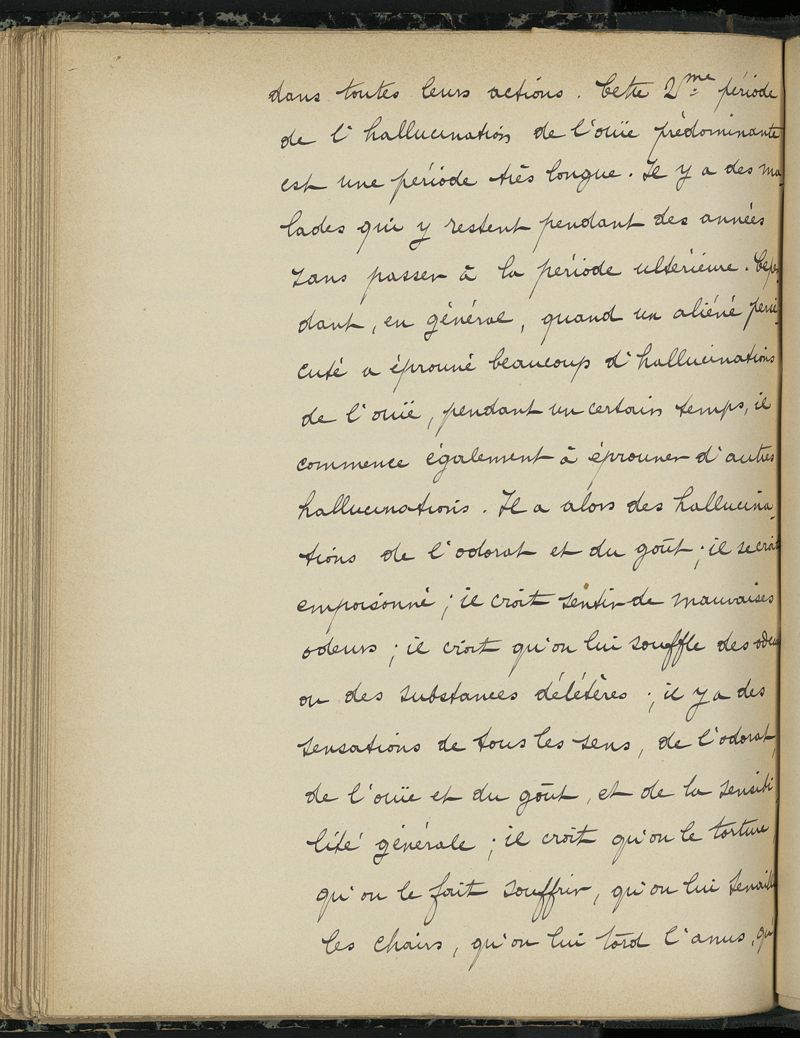 dans toutes leurs actions. Cette 2me période
de l'hallucination de l'ouïe prédominante
est une période très longue. Il y a des ma-
lades qui y restent pendant des années
sans passer à la période ultérieure. Cepen-
dant, en général, quand un aliéné persé-
cuté a éprouvé beaucoup d'hallucinations
de l'ouïe, pendant un certain temps, il
commence également à éprouver d'autres
hallucinations. Il a alors des hallucina-
tions de l'odorat et du goût ; il se croit
empoisonné ; il croit sentir de mauvaises
odeurs ; il croit qu'on lui souffle des odeurs
ou des substances délétères ; il y a des
sensations de tous les sens, de l'odorat,
de l'ouïe et du goût, et de la sensibi
lité générale ; il croit qu'on le torture,
qu'on le fait souffrir, qu'on lui tenaille
les chairs, qu'on lui tord l'anus, qu'